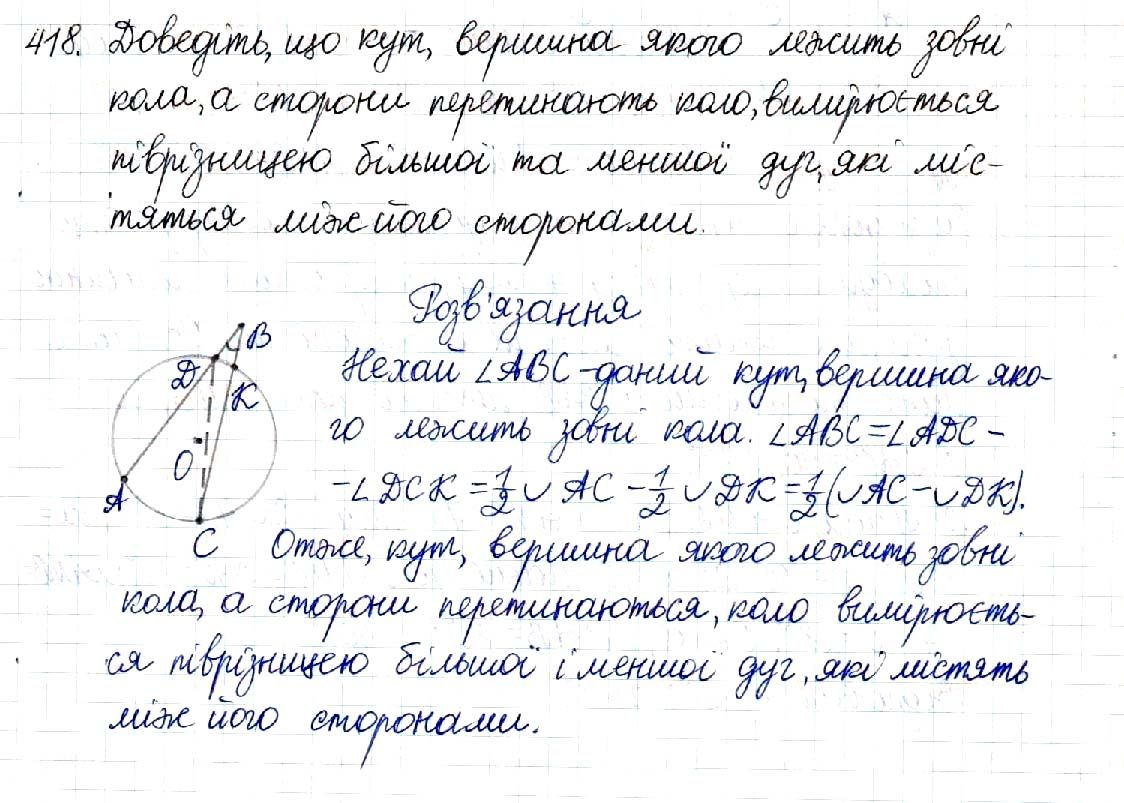 418. Доведіть, що кут, вершина якого лежить зовні
кола, а сторони перетинають коло, вимірюється
піврізницею більшої та меншої дуг, які міс-
тяться між його сторонами.
Розв'язання
B
D
K
O
A
C
Нехай ∠ABC - даний кут, вершина яко-
го лежить зовні кола. ∠ABC = ∠ADC -
- ∠DCK = 1/2 ∪ AC - 1/2 ∪ DK = 1/2 (∪AC - ∪DK).
Отже, кут, вершина якого лежить зовні
кола, а сторони перетинаються, коло вимірюєть-
ся піврізницею більшої і меншої дуг, які містять
між його сторонами.